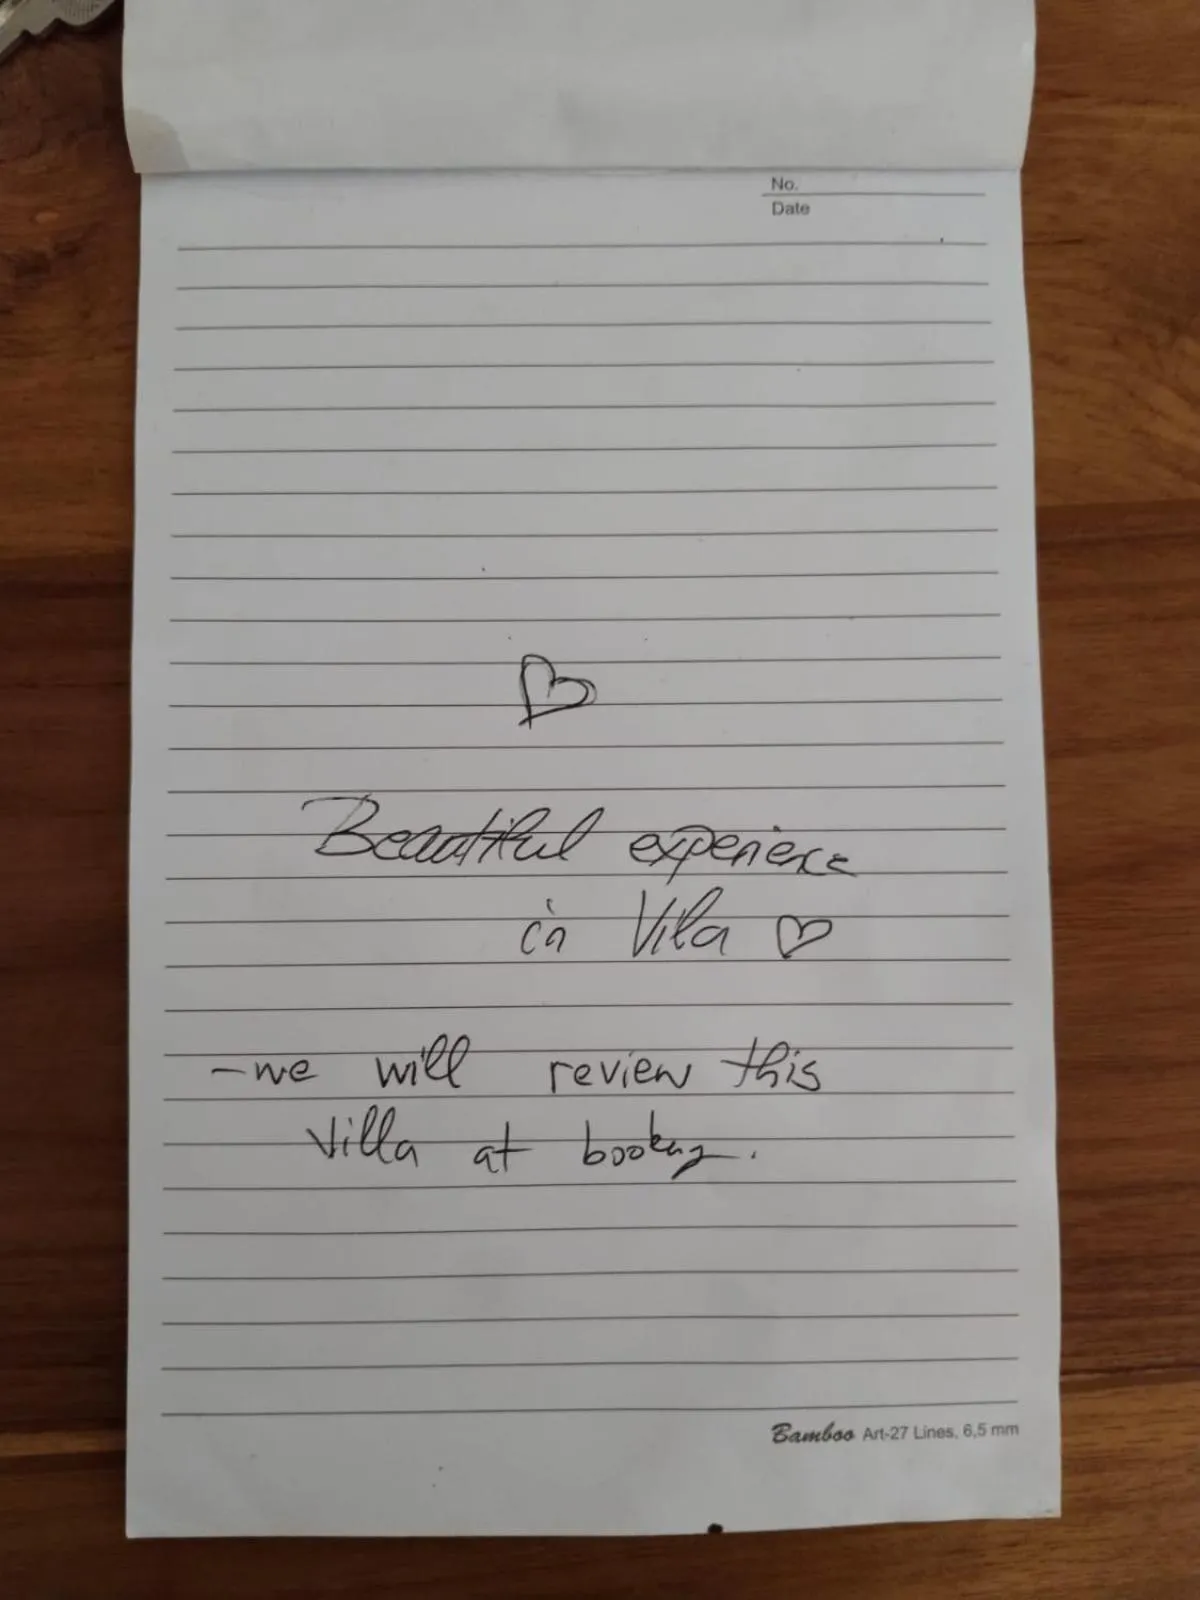 No.
Date
♡
Beautiful experience
in Vila ♡
-we will review this
Villa at booking.
Bamboo Art-27 Lines, 6,5 mm